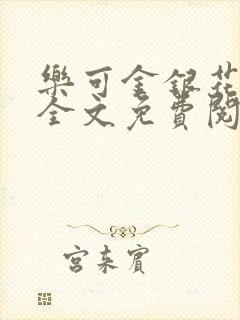 樂可金銀花
全文免費閱
宮未賓